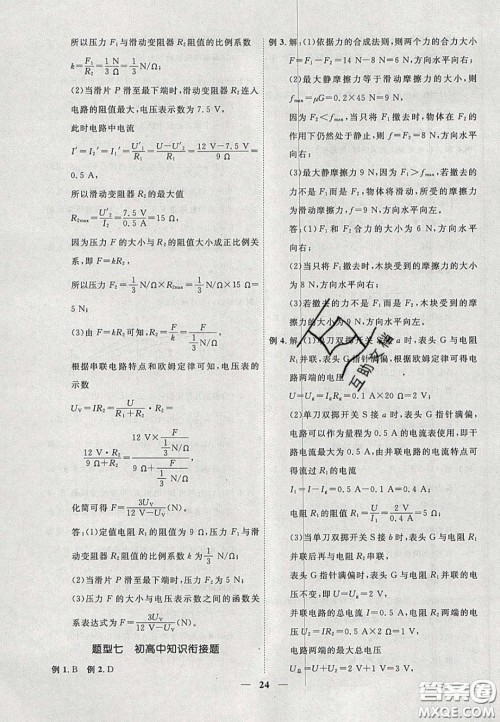 所以压力 F₁ 与滑动变阻器 R₂ 阻值的比例系数
k = F₁/R₂ = 3 N/9 Ω = 1/3 N/Ω
(2)当滑片 P 滑至最下端时,滑动变阻器 R₂ 连入
电路的阻值最大,电压表示数为 7.5 V,
此时电路中电流
I′ = I′₁ = U′₁/R₁ = U－U′₂/R₁ = 12 V－7.5 V/9 Ω =
0.5 A,
所以滑动变阻器 R₂ 的最大值
R₂max = U′₂/I′ = 7.5 V/0.5 A = 15 Ω,
因为压力 F 的大小与 R₂ 的阻值大小成正比例关
系,即:F = kR₂,
所以压力 F₂ = 1/3 N/Ω × R₂max = 1/3 N/Ω × 15 Ω =
5 N;
(3)由 F = kR₂ 可得,R₂ = F/k = F/(1/3 N/Ω),
根据串联电路特点和欧姆定律可得,电压表的示数
Uv = IR₂ = U/(R₁+R₂) · R₂ =
(12 V·R₂)/(9 Ω+R₂) = (12 V×F/(1/3 N/Ω))/(9 Ω+F/(1/3 N/Ω)),
化简可得 F = 3Uv/(12 V－Uv)(N)。
答:(1)定值电阻 R₁ 的阻值为 9 Ω,压力 F₁ 与滑
动变阻器 R₂ 阻值的比例系数 k 为 1/3 N/Ω;
(2)当滑片 P 滑至最下端时,压力 F₂ 的大小为 5 N;
(3)压力 F 的大小与电压表示数之间的函数关
系表达式为 F = 3Uv/(12 V－Uv)(N)。
题型七 初高中知识衔接题
例 1.B 例 2.D
例 3.解:(1)依据力的合成法则,则两个力的合力大小
F = F₁－F₂ = 10 N－4 N = 6 N,方向水平向右;
(2)最大静摩擦力等于滑动摩擦力的大小,则
fmax = μG = 0.2×45 N = 9 N,
因为 F₂ < fmax,当将 F₁ 撤去时,物体在 F₂ 的
作用下仍然处于静止,则 f = F₂ = 4 N,方向水平
向右;
(3)最大静摩擦力 9 N,因为 F₁ > fmax,若撤去的
力不是 F₁ 而是 F₂,物体将滑动,所受到的摩擦力
等于滑动摩擦力,大小为 9 N,方向水平向左。
答:(1)F₁ 和 F₂ 合力的大小为 6 N,方向水平
向右;
(2)当将 F₁ 撤去时,木块受到的摩擦力大小为
4 N,方向水平向右;
(3)若撤去的力不是 F₁ 而是 F₂,木块受到的摩
擦力大小为 9 N,方向水平向左。
例 4.解:(1)单刀双掷开关 S 接 a 时,表头 G 与电阻
R₁ 并联,表头 G 指针满偏,由欧姆定律可得电阻
R₁ 两端的电压
U = Ug = IgRg = 0.1 A×20 Ω = 2 V;
(2)单刀双掷开关 S 接 a 时,表头 G 指针满偏,
电路可以作为量程为 0.5 A 的电流表使用,即干
路电流最大为 0.5 A,由并联电路电流的特点可得
流过 R₁ 的电流
I₁ = I－Ig = 0.5 A－0.1 A = 0.4 A,
电阻 R₁ 的阻值 R₁ = U/I₁ = 2 V/0.4 A = 5 Ω;
(3)单刀双掷开关 S 接 b 时,表头 G 与电阻 R₁
并联后再与电阻 R₂ 串联,
表头 G 指针满偏时,表头 G 与电阻 R₁ 并联的电
压不变,即 U = Ug = 2 V,
并联电路的总电流 I = 0.5 A,电阻 R₂ 两端的
电压
U₂ = IR₂ = 0.5 A×20 Ω = 10 V,
电路两端的最大电压
U总 = U₂+Ug = 10 V+2 V = 12 V,
24
互助多错
答案圈
MXQE.COM